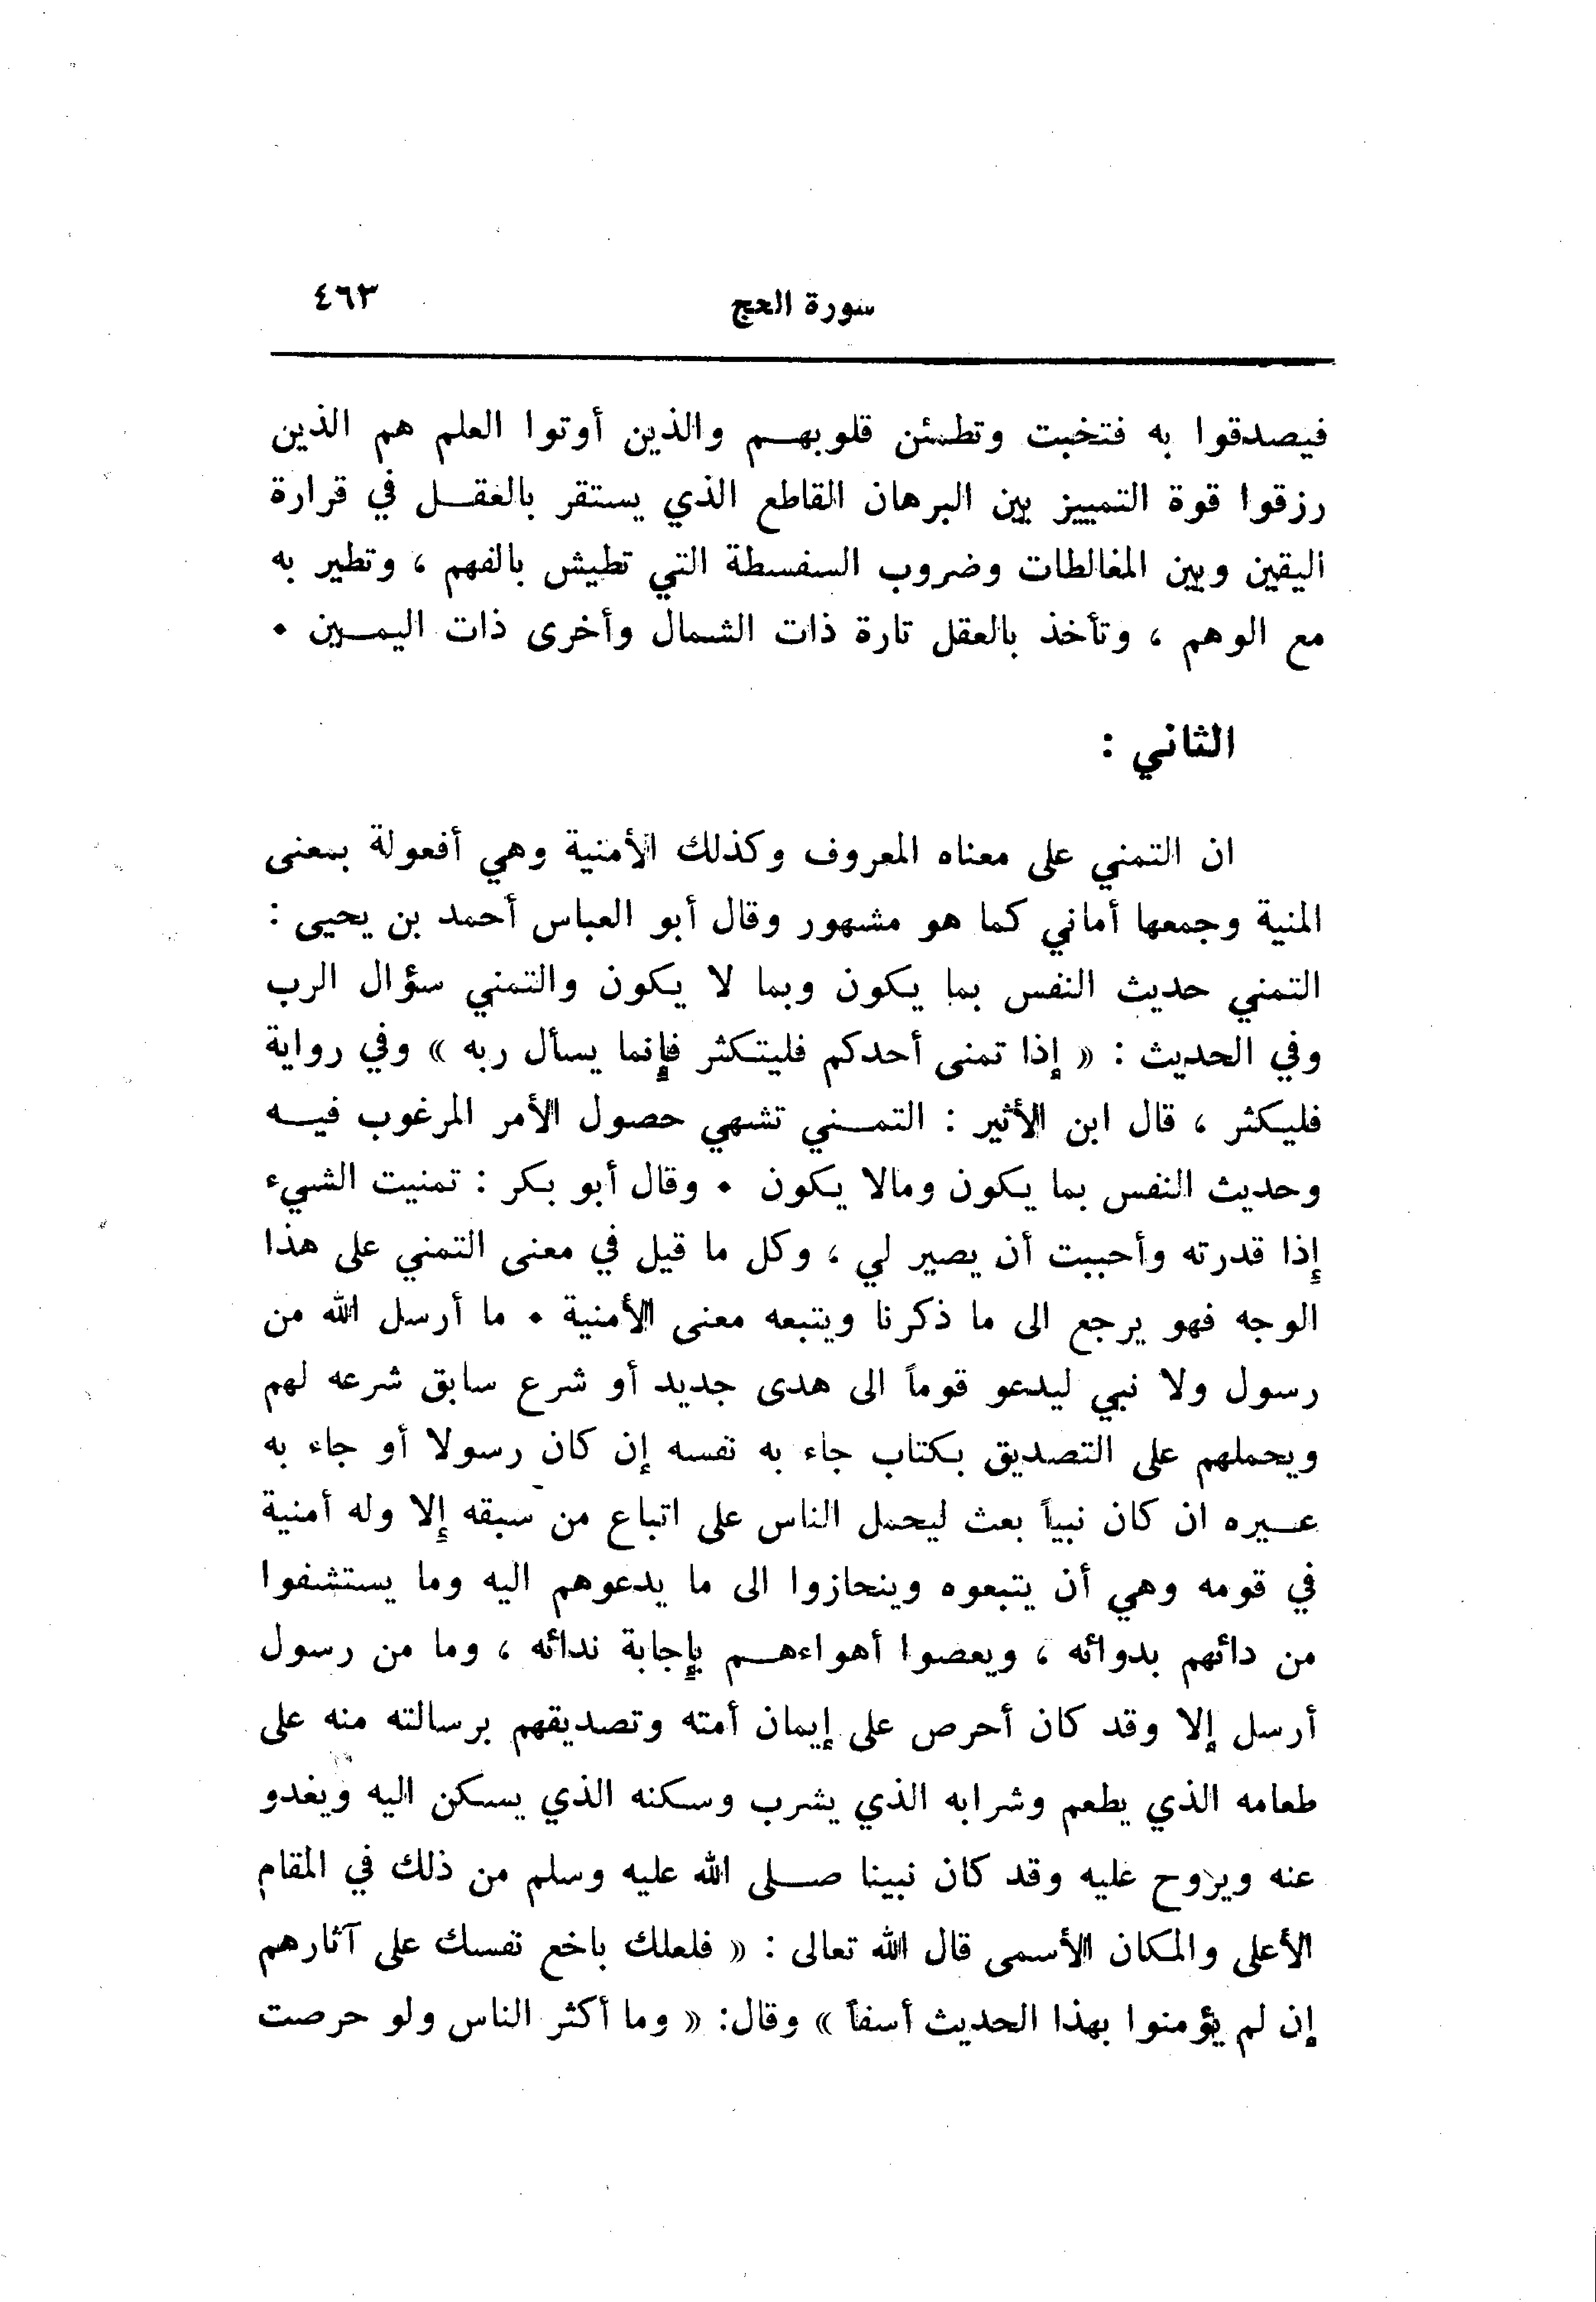 سورة الحج ٤٦٣
فيصدقوا به فتخبت وتطمئن قلوبهم والذين أوتوا العلم هم الذين
رزقوا قوة التمييز بين البرهان القاطع الذي يستقر بالعقل في قرارة
اليقين وبين المغالطات وضروب السفسطة التي تطيش بالفهم ، وتطير به
مع الوهم ، وتأخذ بالعقل تارة ذات الشمال وأخرى ذات اليمين •
الثاني :
ان التمني على معناه المعروف وكذلك الأمنية وهي أفعولة بمعنى
المنية وجمعها أماني كما هو مشهور وقال أبو العباس أحمد بن يحيى :
التمني حديث النفس بما يكون وبما لا يكون والتمني سؤال الرب
وفي الحديث : « إذا تمنى أحدكم فليتكثر فإنما يسأل ربه » وفي رواية
فليكثر ، قال ابن الأثير : التمني تشهي حصول الأمر المرغوب فيه
وحديث النفس بما يكون ومالا يكون • وقال أبو بكر : تمنيت الشيء
إذا قدرته وأحببت أن يصير لي ، وكل ما قيل في معنى التمني على هذا
الوجه فهو يرجع الى ما ذكرنا ويتبعه معنى الأمنية • ما أرسل الله من
رسول ولا نبي ليدعو قوماً الى هدى جديد أو شرع سابق شرعه لهم
ويحملهم على التصديق بكتاب جاء به نفسه إن كان رسولا أو جاء به
عيره ان كان نبياً بعث ليحمل الناس على اتباع من سبقه إلا وله أمنية
في قومه وهي أن يتبعوه وينحازوا الى ما يدعوهم اليه وما يستشفوا
من دائهم بدوائه ، ويعصوا أهواءهم بإجابة ندائه ، وما من رسول
أرسل إلا وقد كان أحرص على إيمان أمته وتصديقهم برسالته منه على
طعامه الذي يطعم وشرابه الذي يشرب وسكنه الذي يسكن اليه ويغدو
عنه ويروح عليه وقد كان نبينا صلى الله عليه وسلم من ذلك في المقام
الأعلى والمكان الأسمى قال الله تعالى : « فلعلك باخع نفسك على آثارهم
إن لم يؤمنوا بهذا الحديث أسفاً » وقال: « وما أكثر الناس ولو حرصت